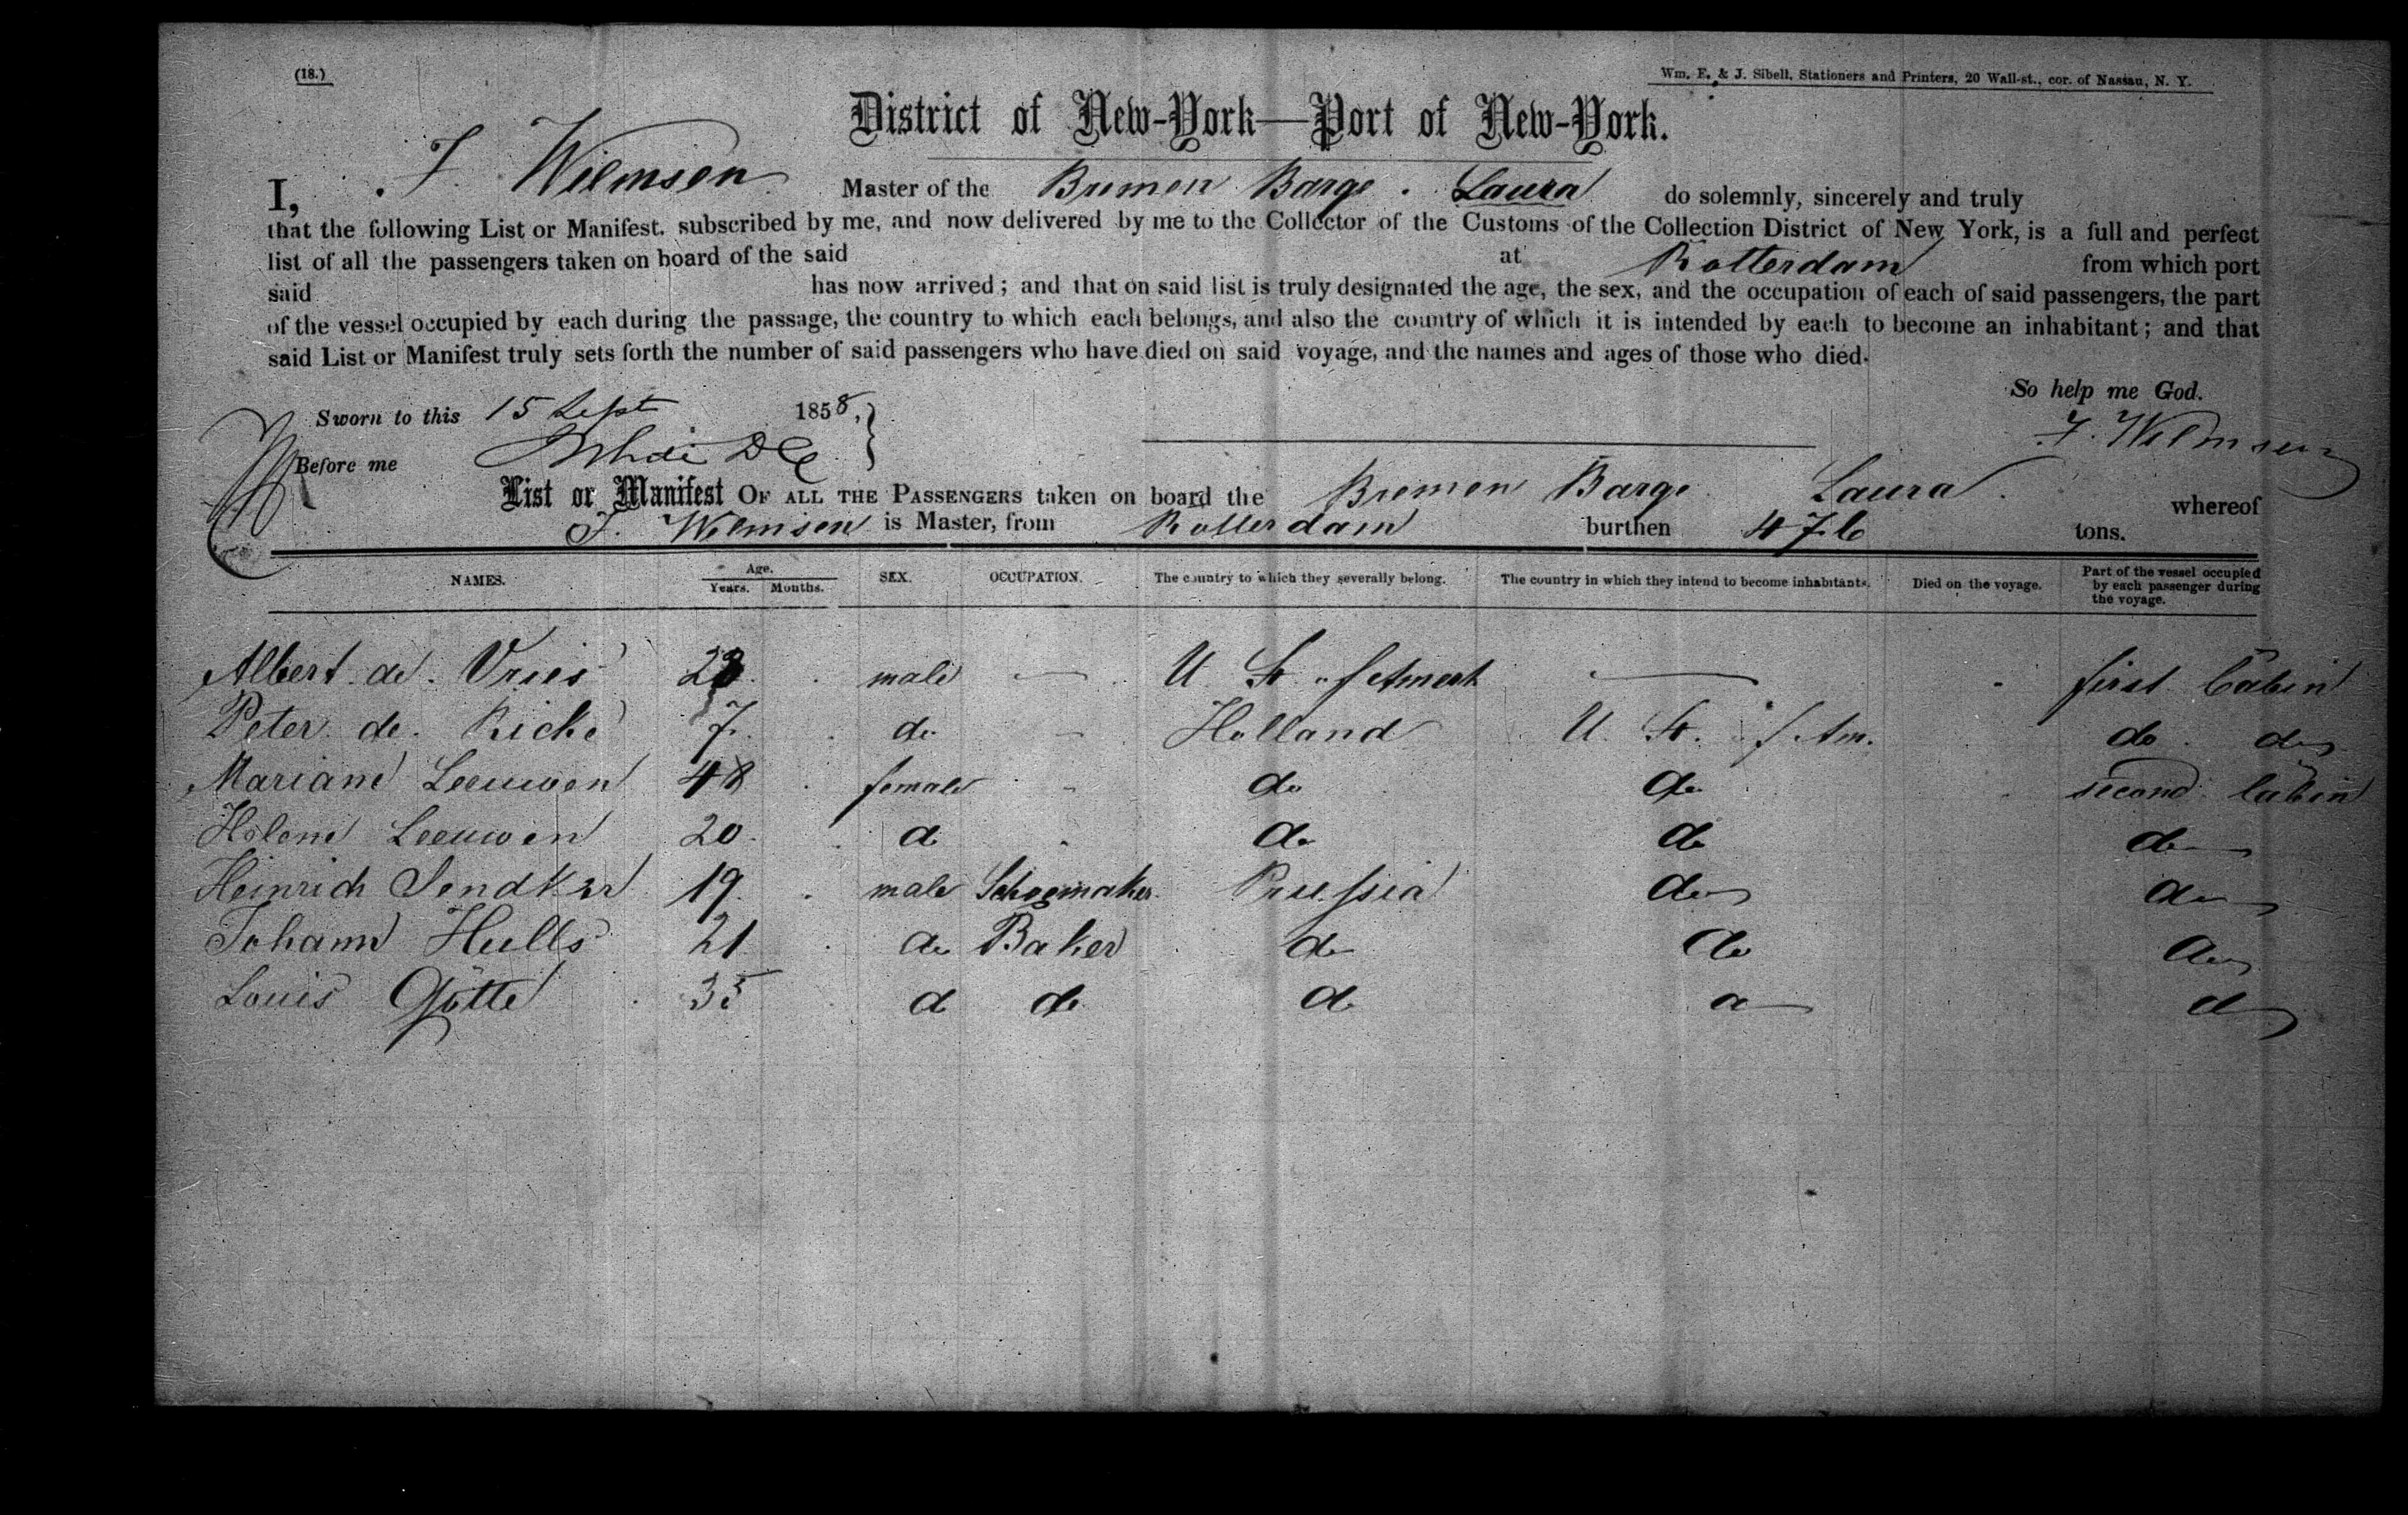 (18.)
Wm. E. & J. Sibell, Stationers and Printers, 20 Wall-st., cor. of Nassau, N. Y.
District of New-York—Port of New-York.
I, F. Wilmsen Master of the Bremen Barge Laura do solemnly, sincerely and truly
that the following List or Manifest. subscribed by me, and now delivered by me to the Collector of the Customs of the Collection District of New York, is a full and perfect
list of all the passengers taken on board of the said at Rotterdam from which port
said has now arrived; and that on said list is truly designated the age, the sex, and the occupation of each of said passengers, the part
of the vessel occupied by each during the passage, the country to which each belongs, and also the country of which it is intended by each to become an inhabitant; and that
said List or Manifest truly sets forth the number of said passengers who have died on said voyage, and the names and ages of those who died.
So help me God.
Sworn to this 15 Sept 1858,
F. Wilmsen
Before me
List or Manifest OF ALL THE PASSENGERS taken on board the Bremen Barge Laura whereof
F. Wilmsen is Master, from Rotterdam burthen 476 tons.
NAMES. Age. Years. Months. SEX. OCCUPATION. The country to which they severally belong. The country in which they intend to become inhabitants. Died on the voyage. Part of the vessel occupied by each passenger during the voyage.
Albert de Vries male — U St of Amerk — first Cabin
Peter de Riche 7 do - Holland U St. of Am. do do
Mariane Leeuwen 48 female - do do second Cabin
Helene Leeuwen 20 do do do do
Heinrich Sendker 19 male Schoemaker Prussia do do
Johann Hulls 21 do Baker do do do
Louis Götte 35 do do do do do